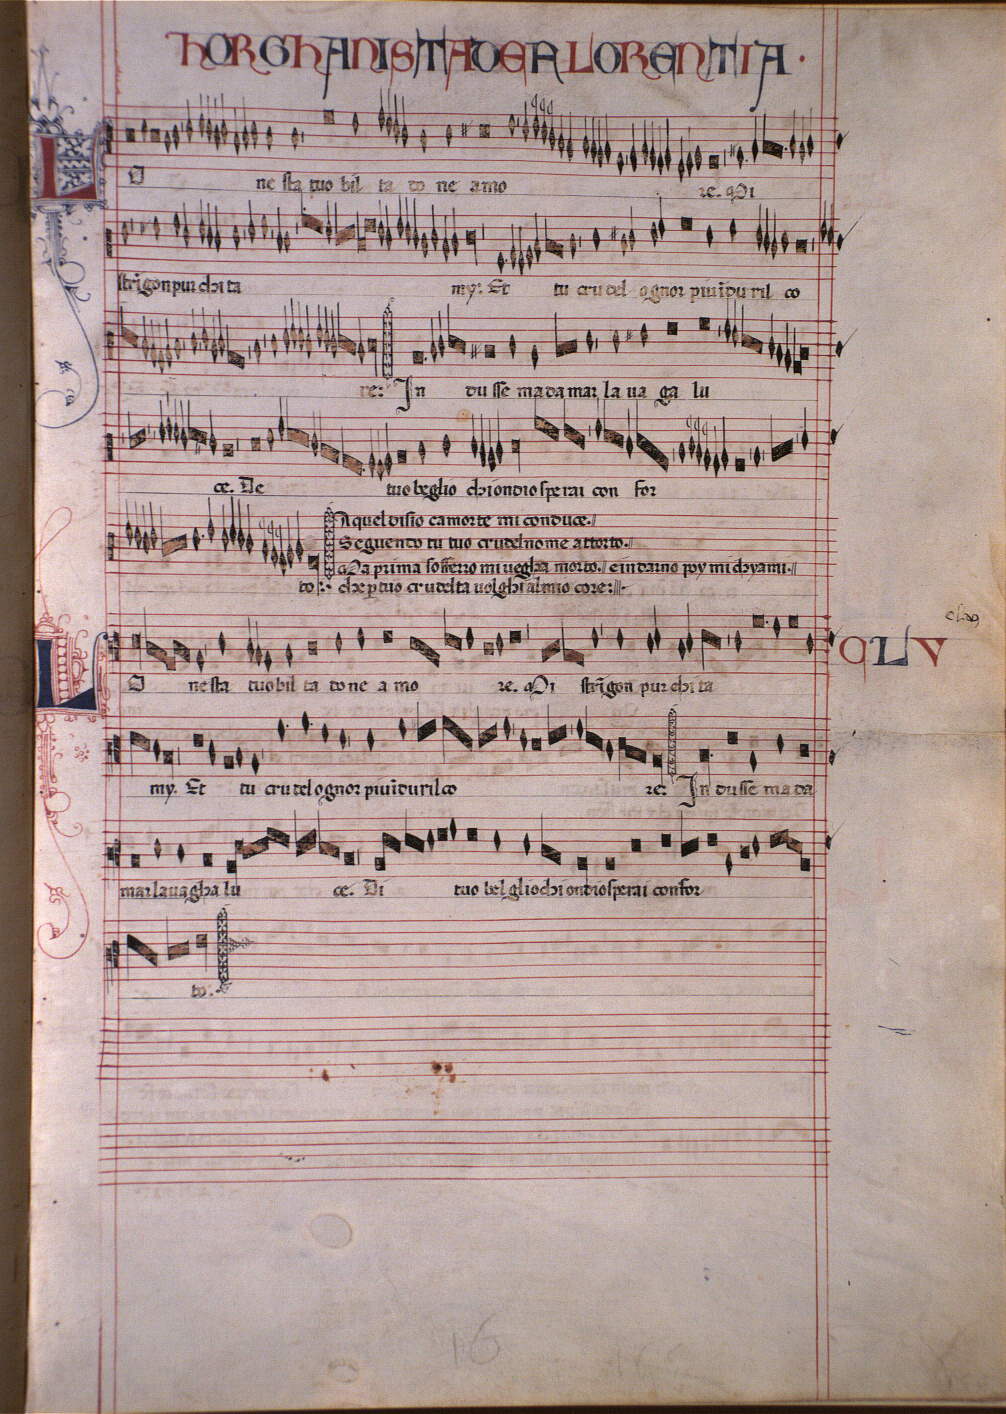 HORGHANISTA DE FLORENTIA
LO nesta tuo bil ta to ne amo re. Mi
strīgon pur chi ta my. Et tu cru del ognor piu īdu ril co
re: In du sse ma da mar la ua ga lu
ce. De tuo beglio chi ondio sperai con for
A quel disio ca morte mi conduce.
Seguendo tu tuo crudel nome attorto.
to: Ma prima mi uegha morto. e indarno poy mi chyami.
che p tuo crudelta uolghi al mio core:
CLV
LO nesta tuo bil ta to ne a mo re. Mi strīgon pur chi ta
my. Et tu cru del ognor piu īduril co re: In dusse ma da
mar la uagha lu ce. Di tuo bel glio chi ondio sperai con for
to.
16